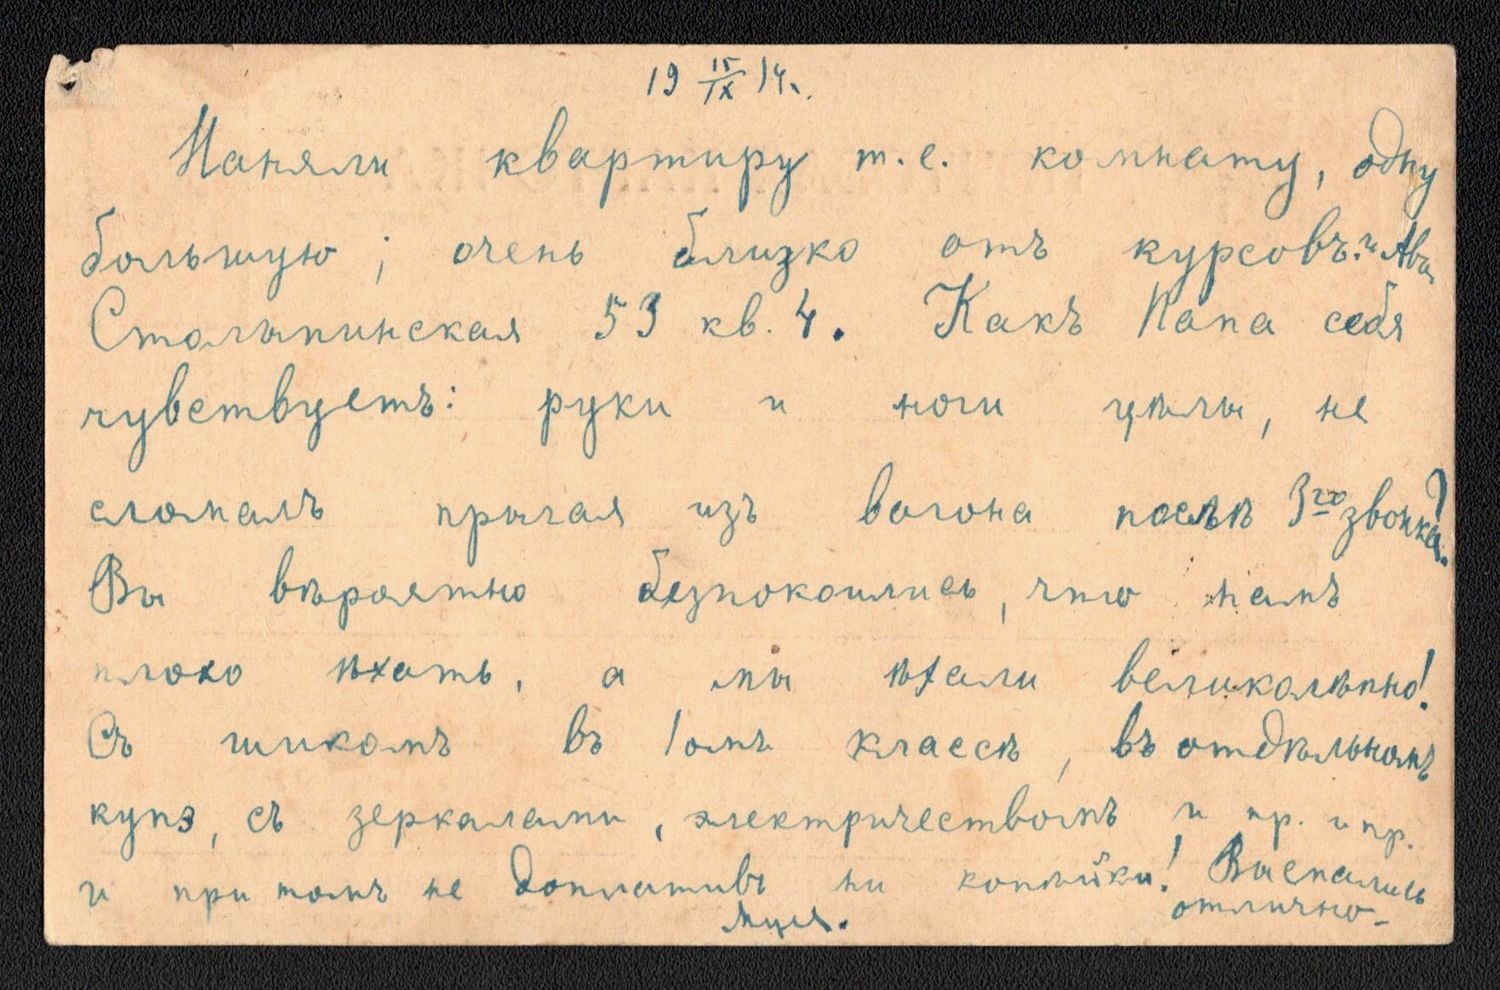 19 15/IX 14.
Наняли квартиру т.е. комнату, одну
большую; очень близко отъ курсовъ.
Столыпинская 53 кв. 4. Какъ Папа себя
чувствуетъ: руки и ноги цѣлы, не
сломалъ прыгая изъ вагона послѣ 3го звонка?
Вы вѣроятно безпокоились, что намъ
плохо ѣхать, а мы ѣхали великолѣпно!
Съ шикомъ въ 1омъ классѣ, въ отдѣльномъ
купэ, съ зеркалами, электричествомъ и пр. и пр.
и при томъ не доплативъ ни копѣйки! Выспались
отлично-
Муся.